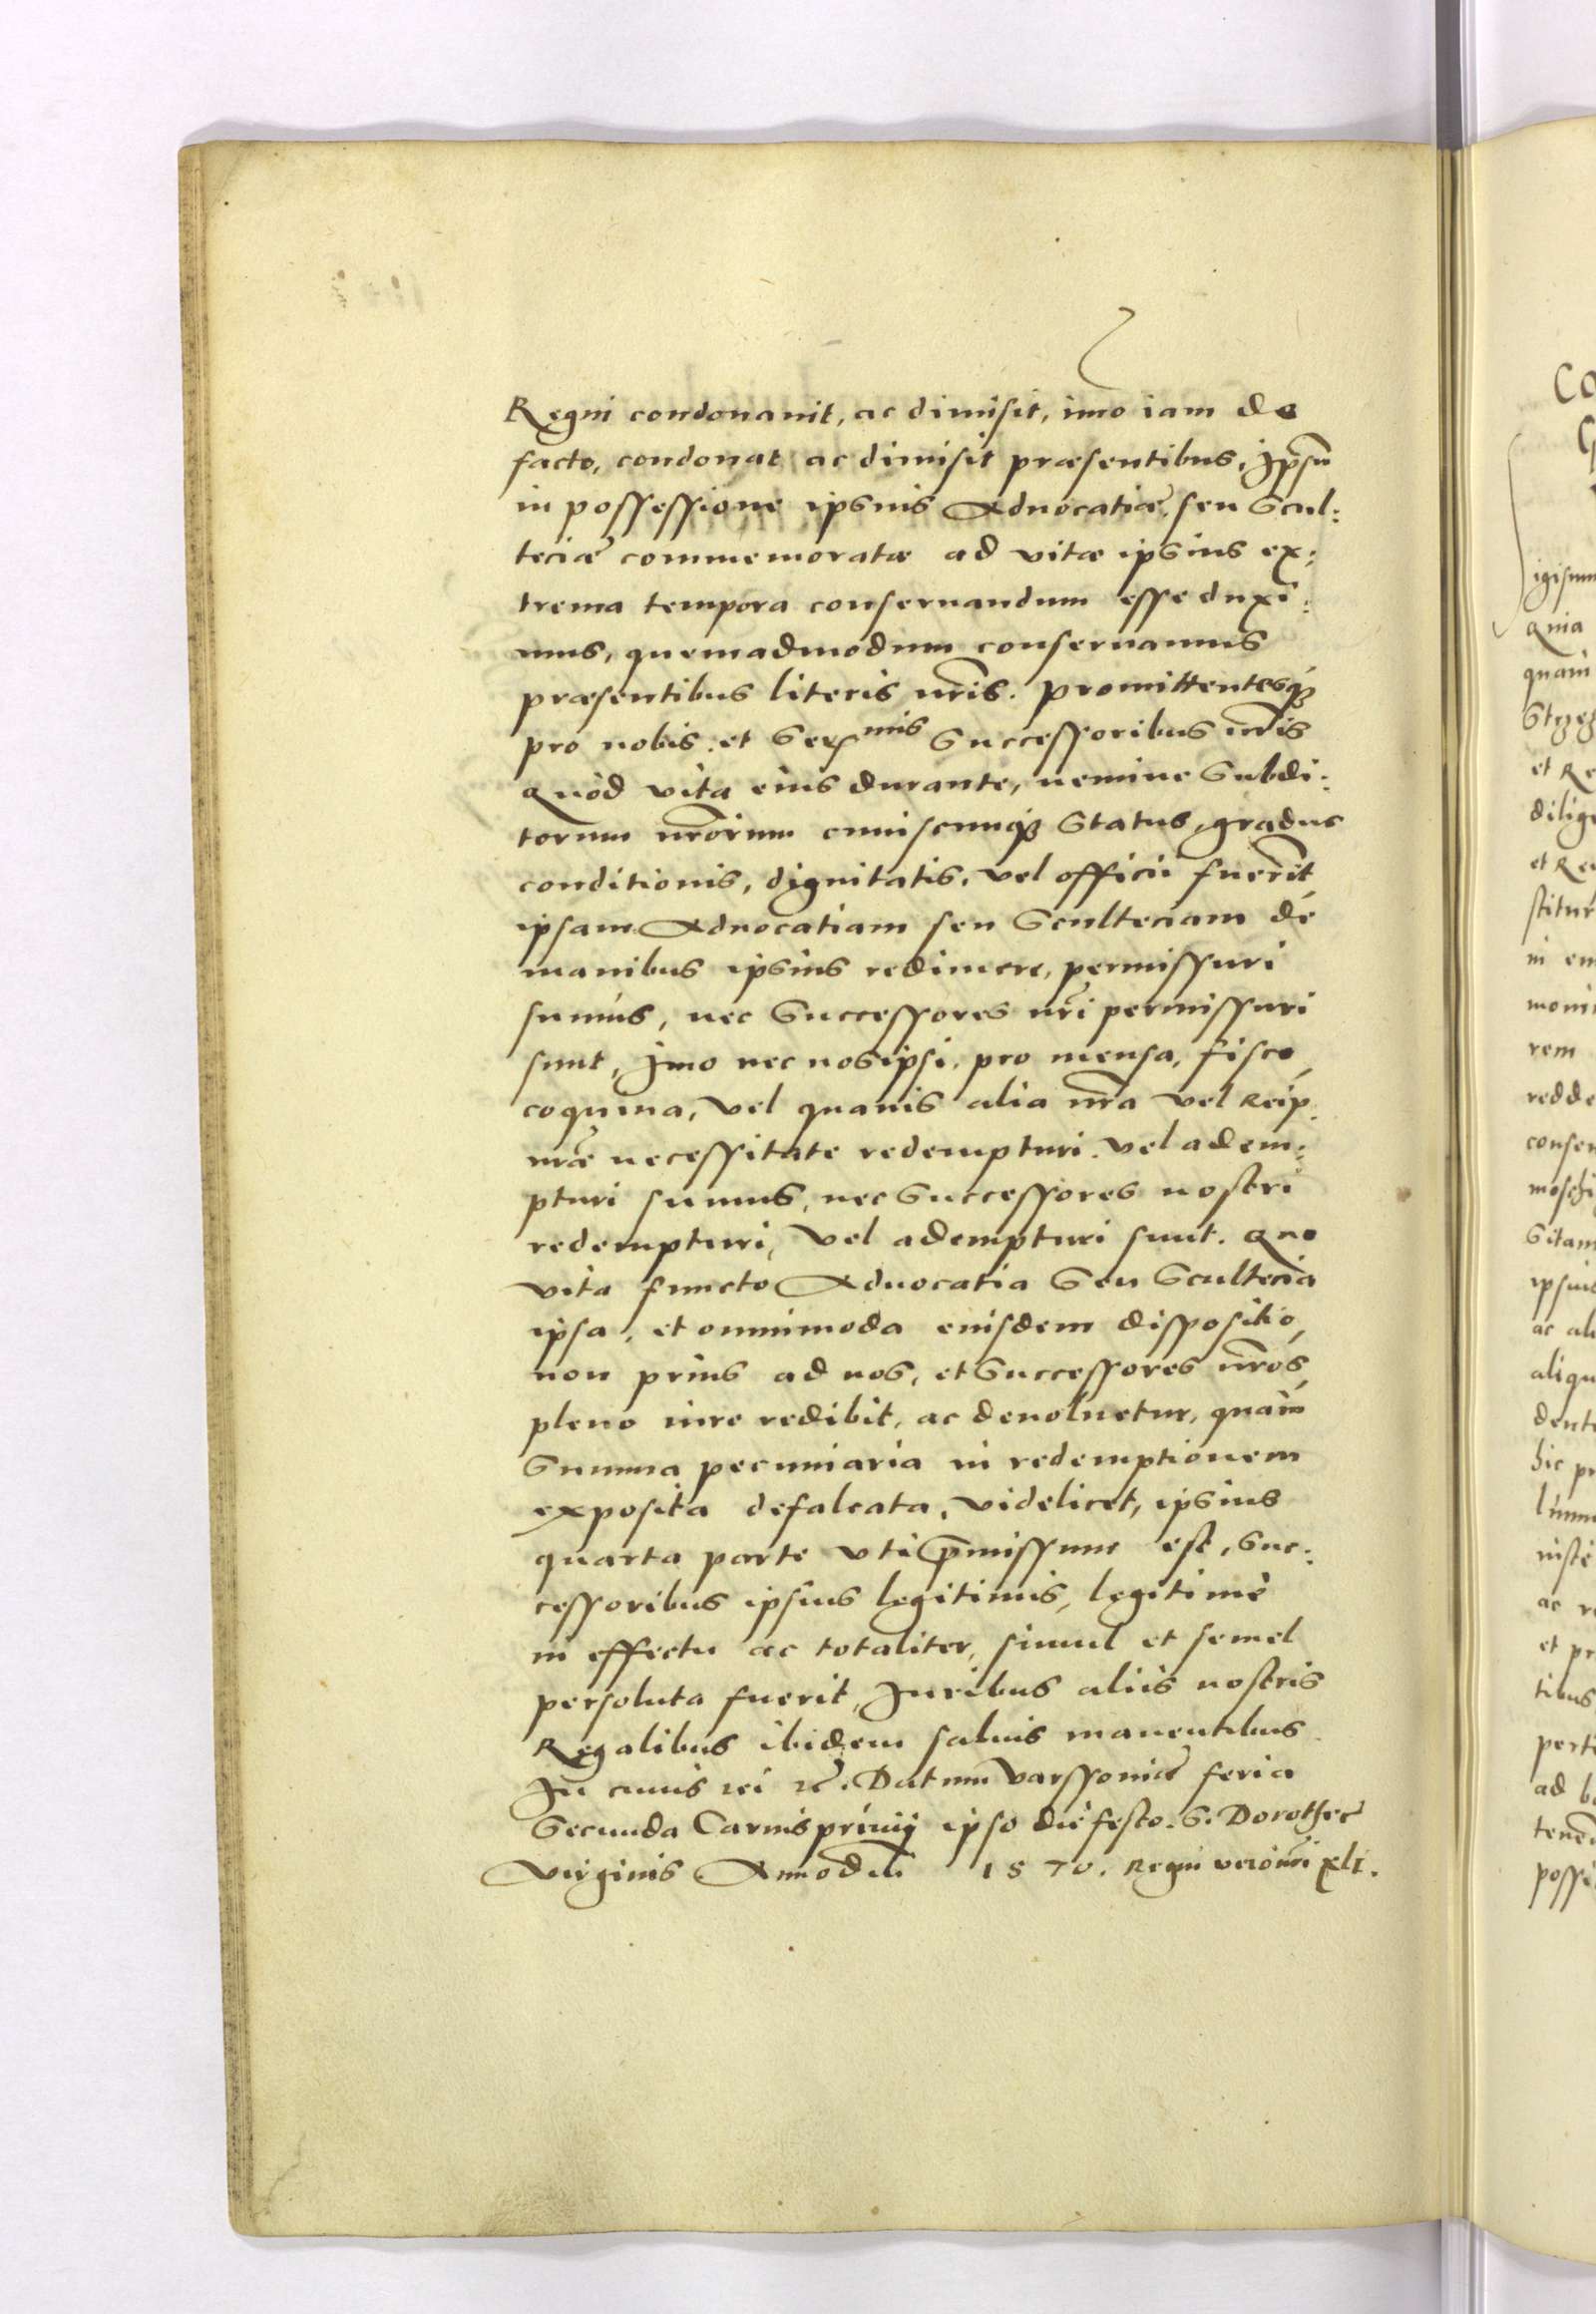 Regni condonauit, ac dimisit, imo iam de
facto, condonat ac dimisit præsentibus, Ip̃sũ
in possessione ipsius Aduocatiæ, seu Scul:
teciæ commemoratæ ad vitæ ipsius ex:
trema tempora conseruandum esse duxi:
mus, quemadmodum conseruamus
præsentibus literis nr̃is. promittentesq́
pro nobis et Serꝰᵐⁱˢ Successoribus nr̃is
Quòd vita eius durante, nemine Subdi:
torum nr̃orum cuiuscunq Status, gradus
conditionis, dignitatis, vel officii fuerit,
ipsam Aduocatiam seu Sculteciam de
manibus ipsius redimere, permissuri
sumús, nec Successores nr̃i permissuri
sunt, Imo nec nos ipsi, pro mensa, fisco,
coquina, vel quauis alia nr̃a vel Reip.
nr̃æ necessitate redempturi vel adem:
pturi sumus, nec Successores nostri
redempturi, vel adempturi sunt. Quo
vita functo Aduocatia Seu Scultecia
ipsa, et omnimoda eiusdem dispositio,
non prius ad nos, et Successores nr̃os,
pleno iure redibit, ac deuoluetur, quàm
Summa pecuniaria in redemptionem
exposita defalcata, videlicet, ipsius
quarta parte vti p̃missum est, Suc:
cessoribus ipsius legitimis, legitimè
in effectu ac totaliter, simul et semel
persoluta fuerit, Iuribus aliis nostris
Regalibus ibidem saluis manentibus
In cuius rei &c. Datum Varssouiæ feria
Secunda Carnispriuij ipso die festo S. Dorotheæ
Virginis Anno Dni 1570. Regni verò nr̃i xlI.